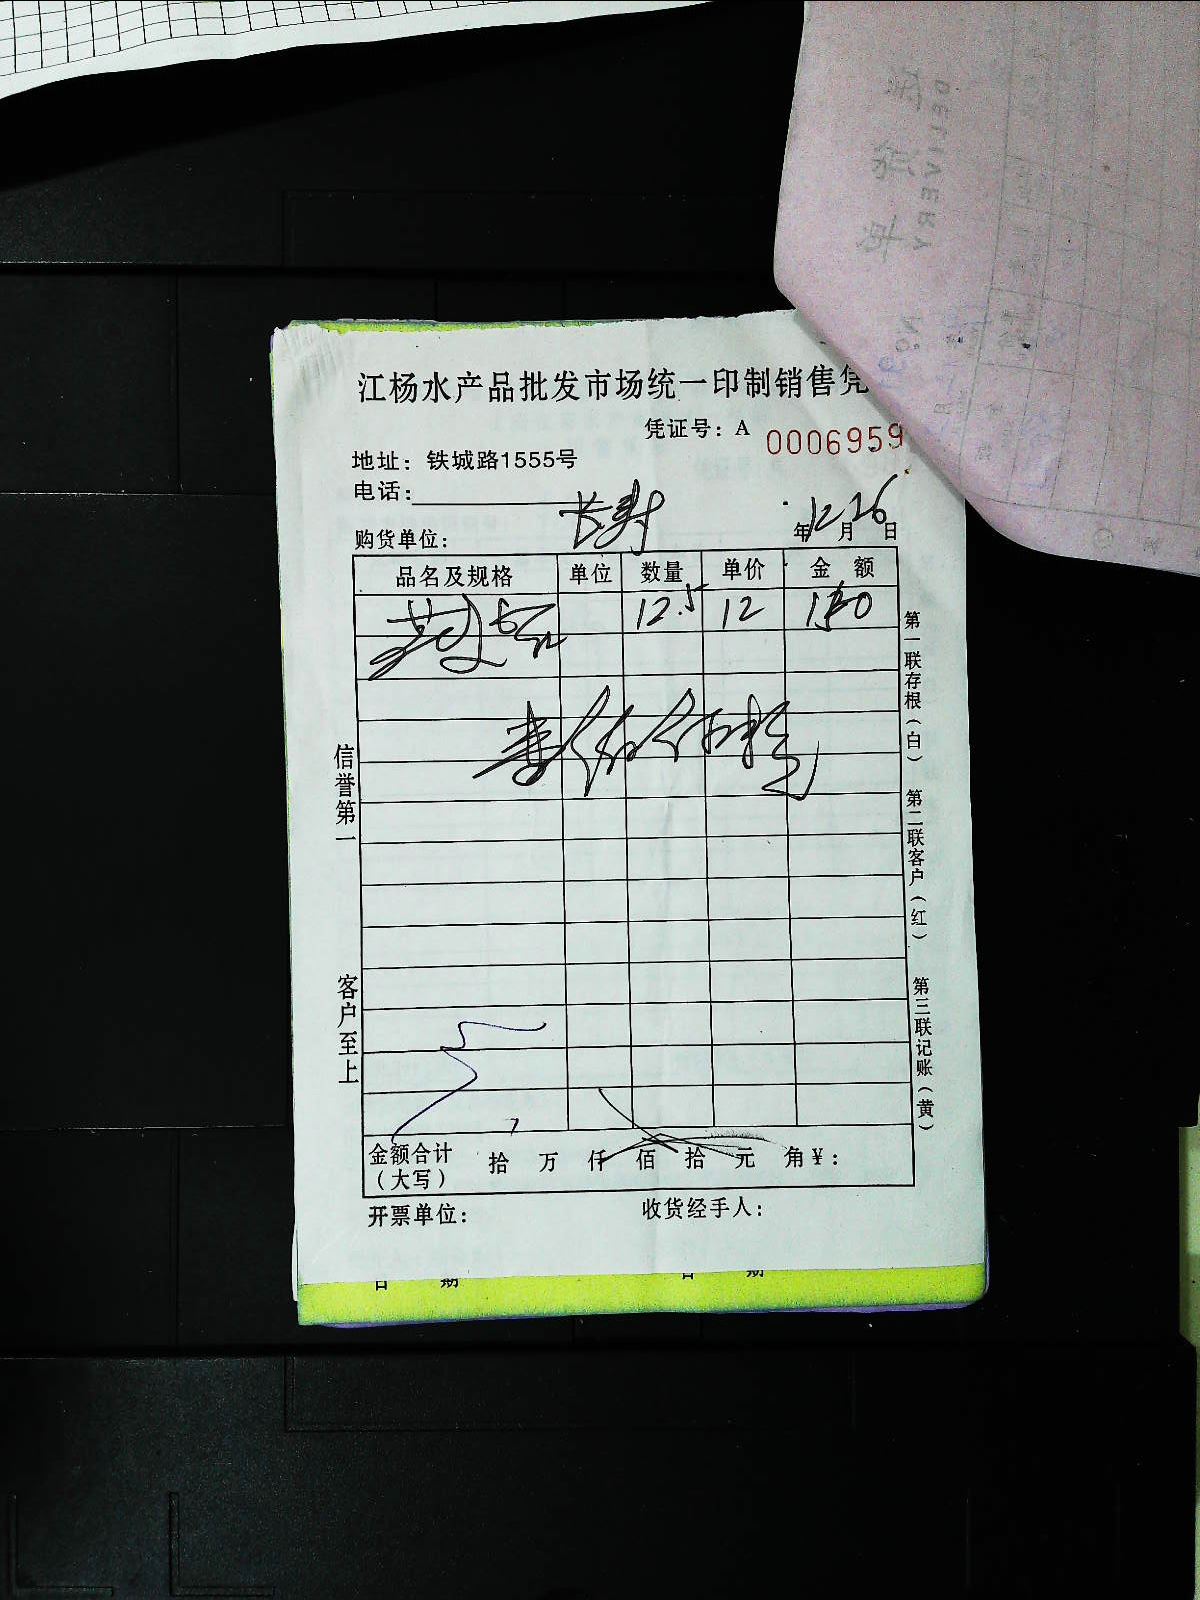 江杨水产品批发市场统一印制销售凭
凭证号：A 0006959
地址：铁城路1555号
电话：
购货单位：长寿 年12月26日
品名及规格 单位 数量 单价 金 额
12.5 12 150
信誉第一
客户至上
第一联存根（白） 第二联客户（红） 第三联记账（黄）
金额合计（大写） 拾 万 仟 佰 拾 元 角¥：
开票单位： 收货经手人：
日 期 日 期
DELIVERY